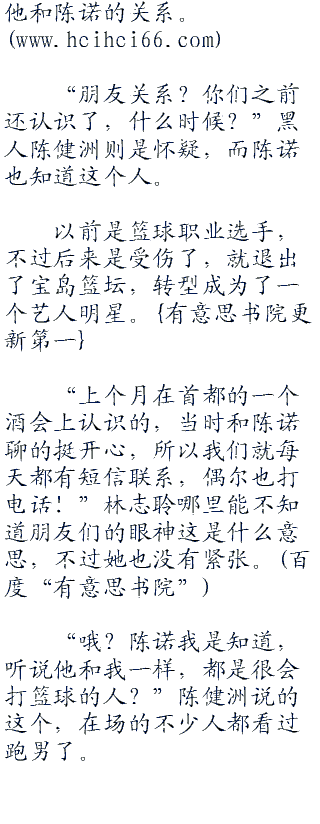 他和陈诺的关系。
(www.hcihci66.com)
“朋友关系？你们之前
还认识了，什么时候？”黑
人陈健洲则是怀疑，而陈诺
也知道这个人。
以前是篮球职业选手，
不过后来是受伤了，就退出
了宝岛篮坛，转型成为了一
个艺人明星。{有意思书院更
新第一}
“上个月在首都的一个
酒会上认识的，当时和陈诺
聊的挺开心，所以我们就每
天都有短信联系，偶尔也打
电话！”林志聆哪里能不知
道朋友们的眼神这是什么意
思，不过她也没有紧张。(百
度“有意思书院”)
“哦？陈诺我是知道，
听说他和我一样，都是很会
打篮球的人？”陈健洲说的
这个，在场的不少人都看过
跑男了。